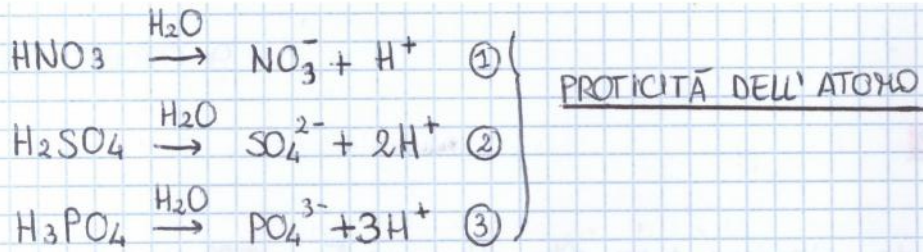 HNO₃ —H₂O→ NO₃⁻ + H⁺ ①
H₂SO₄ —H₂O→ SO₄²⁻ + 2H⁺ ②
H₃PO₄ —H₂O→ PO₄³⁻ + 3H⁺ ③
PROTICITÀ DELL' ATOMO